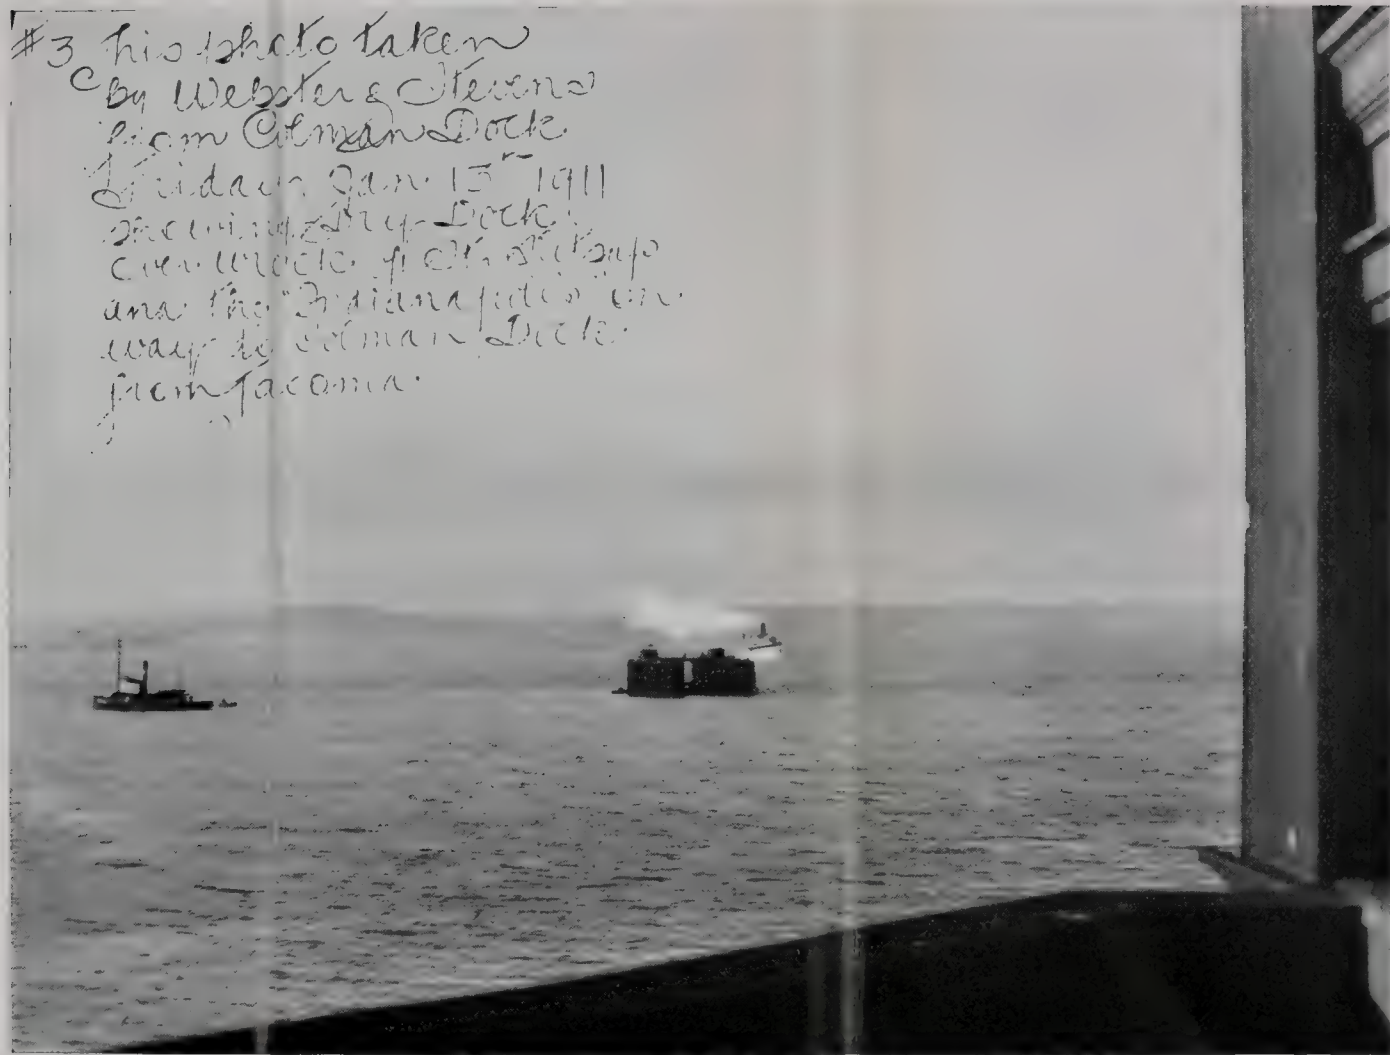 #3 This photo taken
by Webster & Stevens
from Colman Dock
Friday Jan. 13th 1911
showing Dry-Dock
over wreck of Str. Kitsap
and the "Indianapolis" on
way to Colman Dock
from Tacoma.